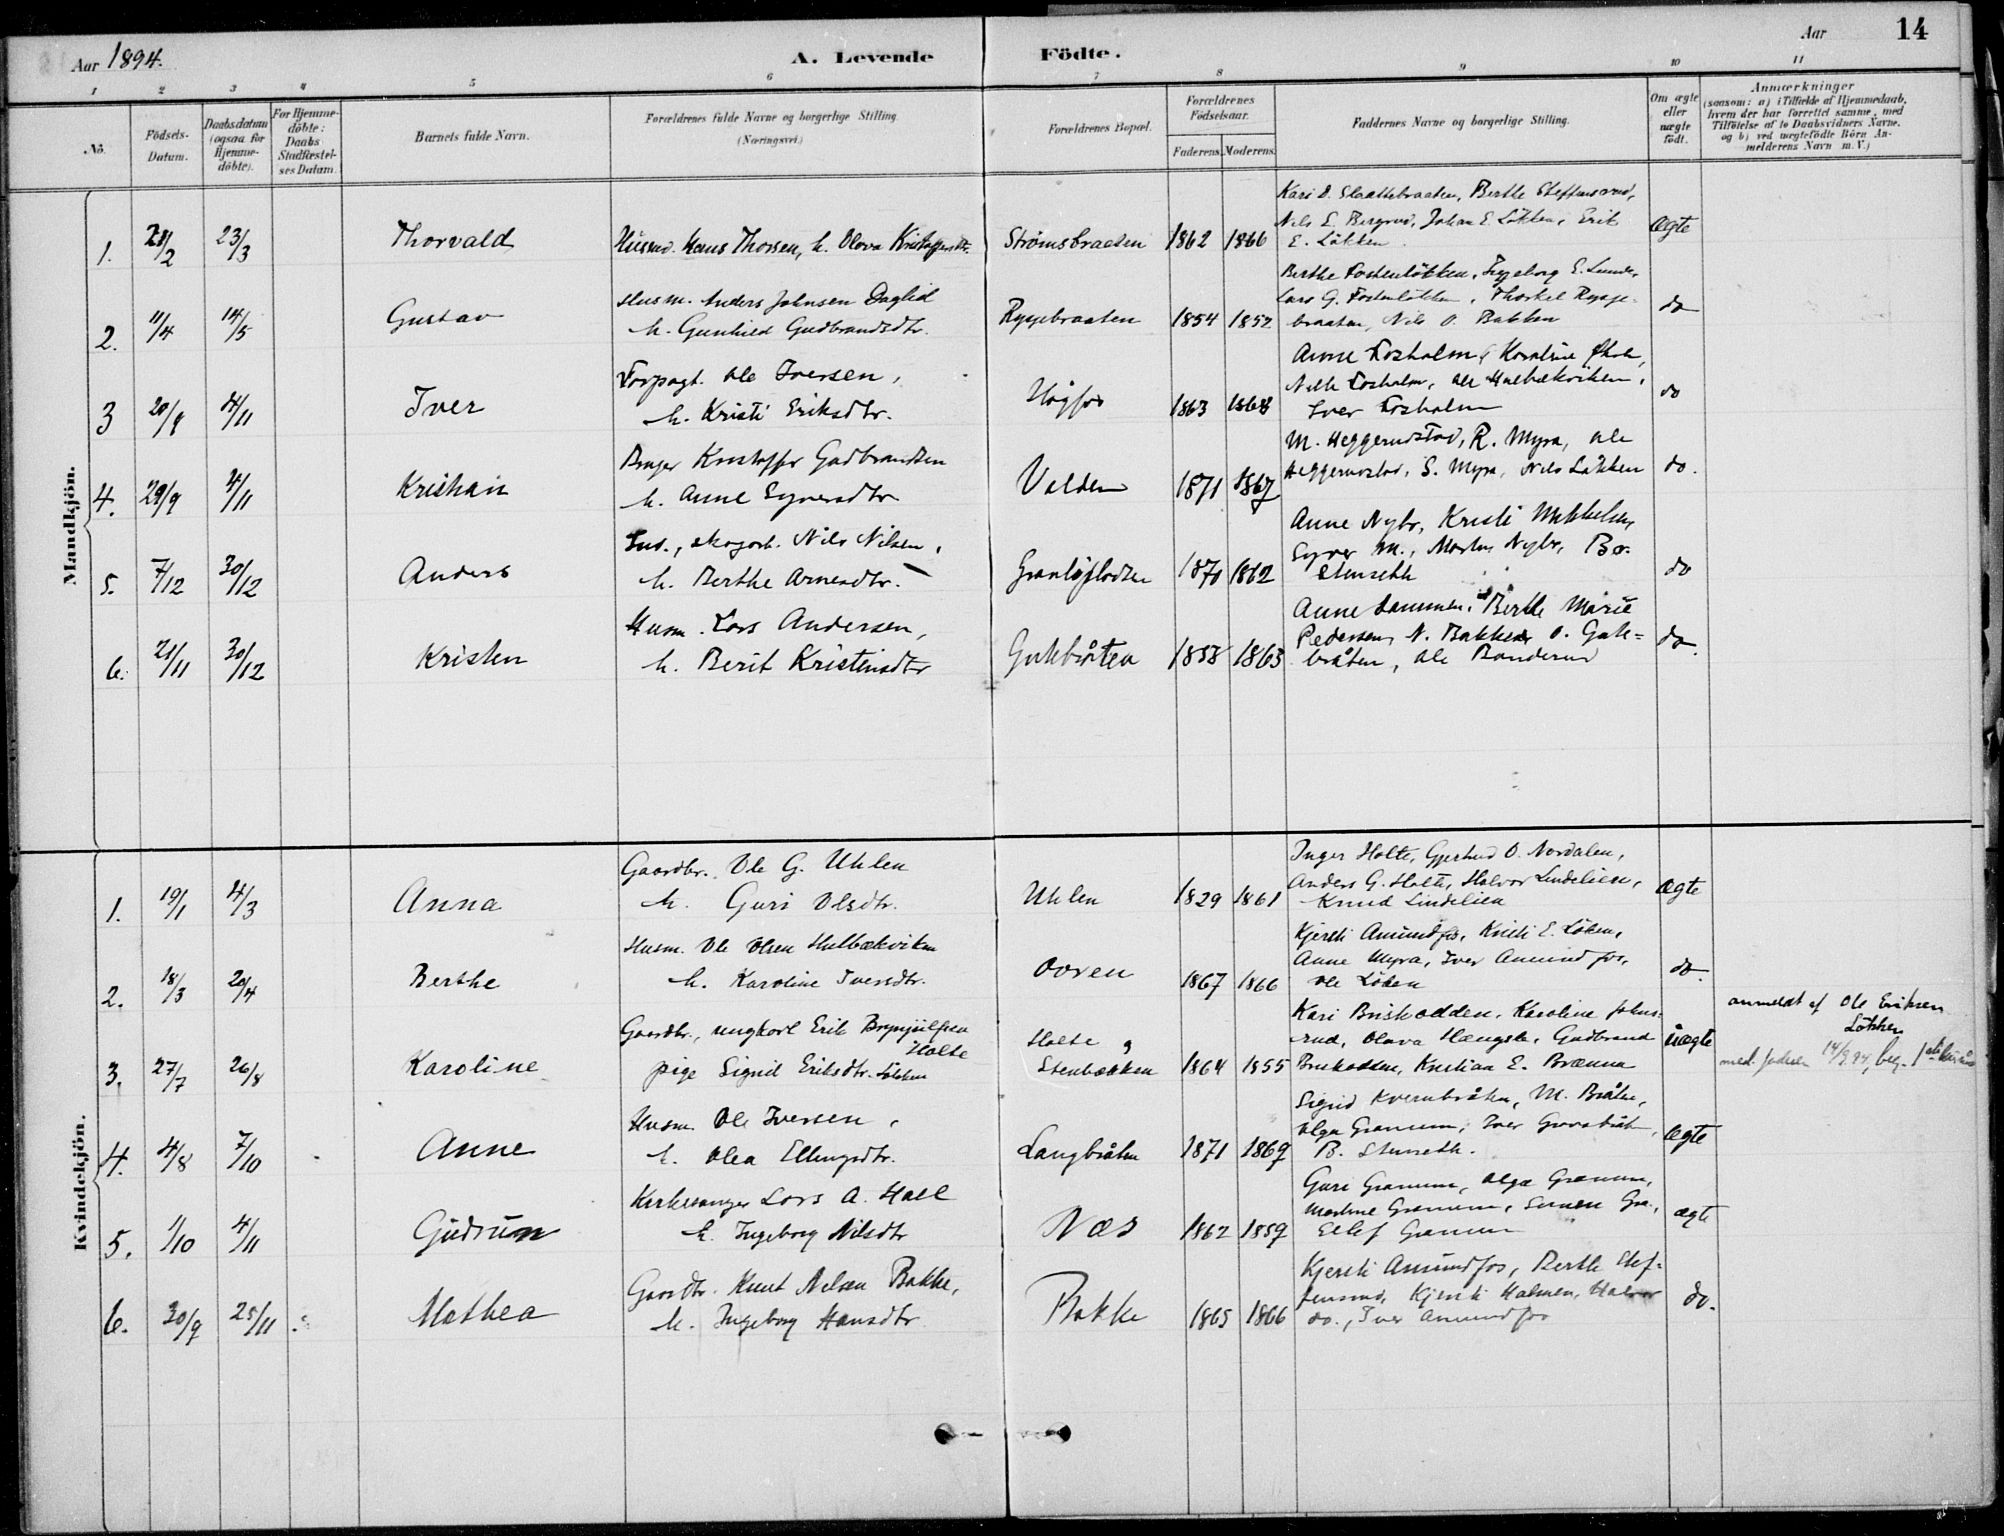 Aar 1894.
A. Levende Födte.
Aar 14
1 2 3 4 5 6 7 8 9 10 11
No.
Födsels-Datum.
Daabsdatum (ogsaa for Hjemme-döbte).
For Hjemme-döbte: Daabs Stadfæstel-ses Datum.
Barnets fulde Navn.
Forældrenes fulde Navne og borgerlige Stilling. (Næringsvei.)
Forældrenes Bopæl.
Forældrenes Födselsaar.
Faderens. Moderens.
Faddernes Navne og borgerlige Stilling.
Om ægte eller uægte födt.
Anmærkninger
(saasom: a) i Tilfælde af Hjemmedaab,
hvem der har forrettet samme, med
Tilföielse af to Daabsvidners Navne.
og b) ved uægtefödte Börn An-
melderens Navn m. V.)
Mandkjön.
1. 21/2 23/3 Thorvald
Husmd. Hans Thorsen, h. Olova Kristoffersdtr.
Strömsbraaten 1862 1866
Kari O. Slaattebraaten, Berthe Steffensrud,
Nils E. Bergrud, Johan E. Lökken, Erik
E. Lökken
Ægte
2. 11/4 14/5 Gustav
Husm. Anders Johnsen Daglid
h. Gunhild Gudbrandsdtr.
Ryggebraaten 1854 1852
Berthe Fostenlökken, Ingeborg E. Lunde,
Lars G. Fostenlökken, Thorkel Rygge-
braaten, Nils O. Bakken
do
3 20/9 4/11 Iver
Forpagt. Ole Iversen,
h. Kristi Eriksdtr.
Högfos 1863 1868
Anne Fosholm, Karoline
Fosholm, Ole Hulbækviken,
Iver Fosholm
do
4. 29/9 4/11 Kristian
Bruger Kristoffer Gudbrandsen
h. Anne Syversdtr
Volden 1871 1867
M. Heggerudstad, R. Myra, Ole
Heggerudstad, S. Myra, Nils Løkken
do.
5. 7/12 30/12 Anders
Ind., skogarb. Nils Nilsen,
h. Berthe Arnesdtr.
1870 1862
Anne Nybr, Kristi Mikkelsen,
Syver M., Martin Nybr, Bo.
Stenseth
do
6. 21/11 30/12 Kristen
Husm. Lars Andersen,
h. Berit Kristensdtr
Gulebråten 1858 1863
Anne Lammen, Berthe Marie
Pedersen, N. Bakken O. Gule-
bråten, Ole Banderud
do.
Kvindekjön.
1. 19/1 4/3 Anna
Gaardbr. Ole G. Uhlen
h. Guri Olsdtr.
Uhlen 1829 1861
Inger Holte, Gjertrud O. Nordalen,
Anders G. Holte, Halvor Lindelien,
Knud Lindelien
Ægte
2. 18/3 20/4 Berthe
Husm. Ole Olsen Hulbækviken
h. Karoline Iversdtr.
Ovren 1867 1866
Kjersti Amundfos, Kristi E. Löken,
Anne Myra, Iver Amundfos,
Ole Löken
do.
3. 27/7 26/8 Karoline
Gaardbr., ungkarl Erik Brynjulfsen
Holte
pige Sigrid Eriksdtr. Lökken
Holte
Stenbækken 1864 1855
Kari Briskodden, Karoline Johns-
rud, Olava Hængsle, Gudbrand
Briskodden, Kristian E. Brænna
uægte
anmeldt af Ole Eriksen
Løkken
14/9 94,
4. 4/8 7/10 Anne
Husm. Ole Iversen,
h. Olea Ellingsdtr.
Langbråten 1871 1869
Sigrid Kvernbråten, M. Bråten,
Olga Granum, Iver
B. Stenseth.
Ægte
5. 1/10 4/11 Gudrun
Kirkesanger Lars A. Hall
h. Ingeborg Nilsdtr
Næs 1862 1859
Guri Granum, Olga Granum,
Martine Granum, Simen Gra.,
Ellef Granum
ægte
6. 30/9 25/11 Mathea
Gaardbr. Knut Nelsen Bakke,
h. Ingeborg Hansdtr
Bakke 1865 1866
Kjersti Amundfos, Berthe Stef-
fensrud, Kjersti Halmen, Halvor
do., Iver Amundfos
do.